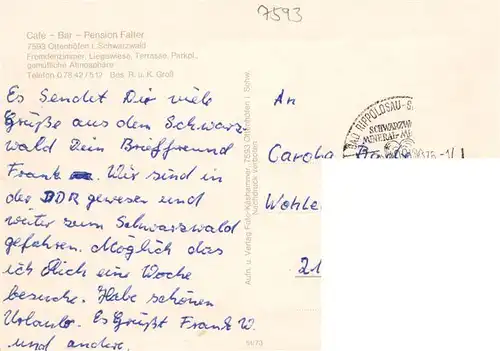 7593
Café – Bar – Pension Falter
7593 Ottenhöfen i. Schwarzwald
Fremdenzimmer, Liegewiese, Terrasse, Parkpl.,
gemütliche Atmosphäre
Telefon 0 78 42 / 512 Bes. R. u. K. Groß
Es Sendet Dir viele
Grüße aus dem Schwarz-
wald Dein Brieffreund
Frank. Wir sind in
der DDR gewesen und
weiter zum Schwarzwald
gefahren. Möglich das
ich Dich eine Woche
besuche. Habe schönen
Urlaub. Es Grüßt Frank W.
und andere.
Aufn. u. Verlag Foto-Käshammer, 7593 Ottenhöfen i. Schw.
Nachdruck verboten
5073
An
Carola
Wohle
21
BAD RIPPOLDSAU-S
SCHWARZW
MINERAL-M